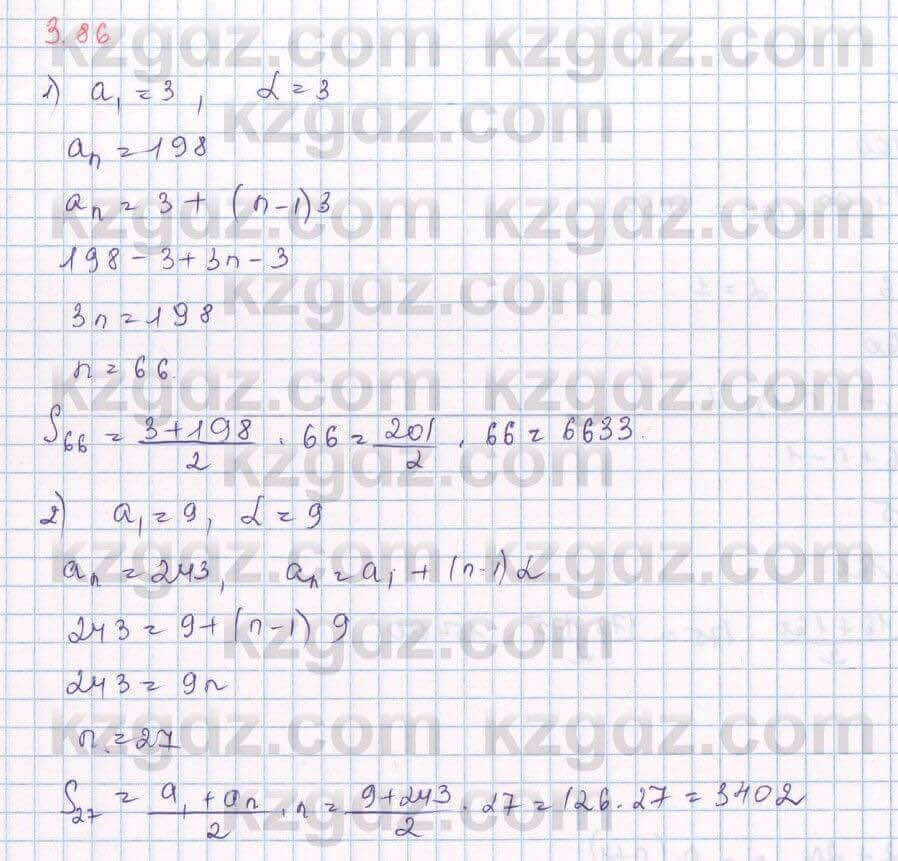 3.86
1) a₁ = 3, d = 3
aₙ = 198
aₙ = 3 + (n-1)3
198 - 3 + 3n - 3
3n = 198
n = 66.
S₆₆ = (3+198)/2 · 66 = 201/2 · 66 = 6633.
2) a₁ = 9, d = 9
aₙ = 243, aₙ = a₁ + (n-1)d
243 = 9 + (n-1) 9
243 = 9n
n = 27
S₂₇ = (a₁ + aₙ)/2 · n = (9+243)/2 · 27 = 126 · 27 = 3402
kzgdz.com